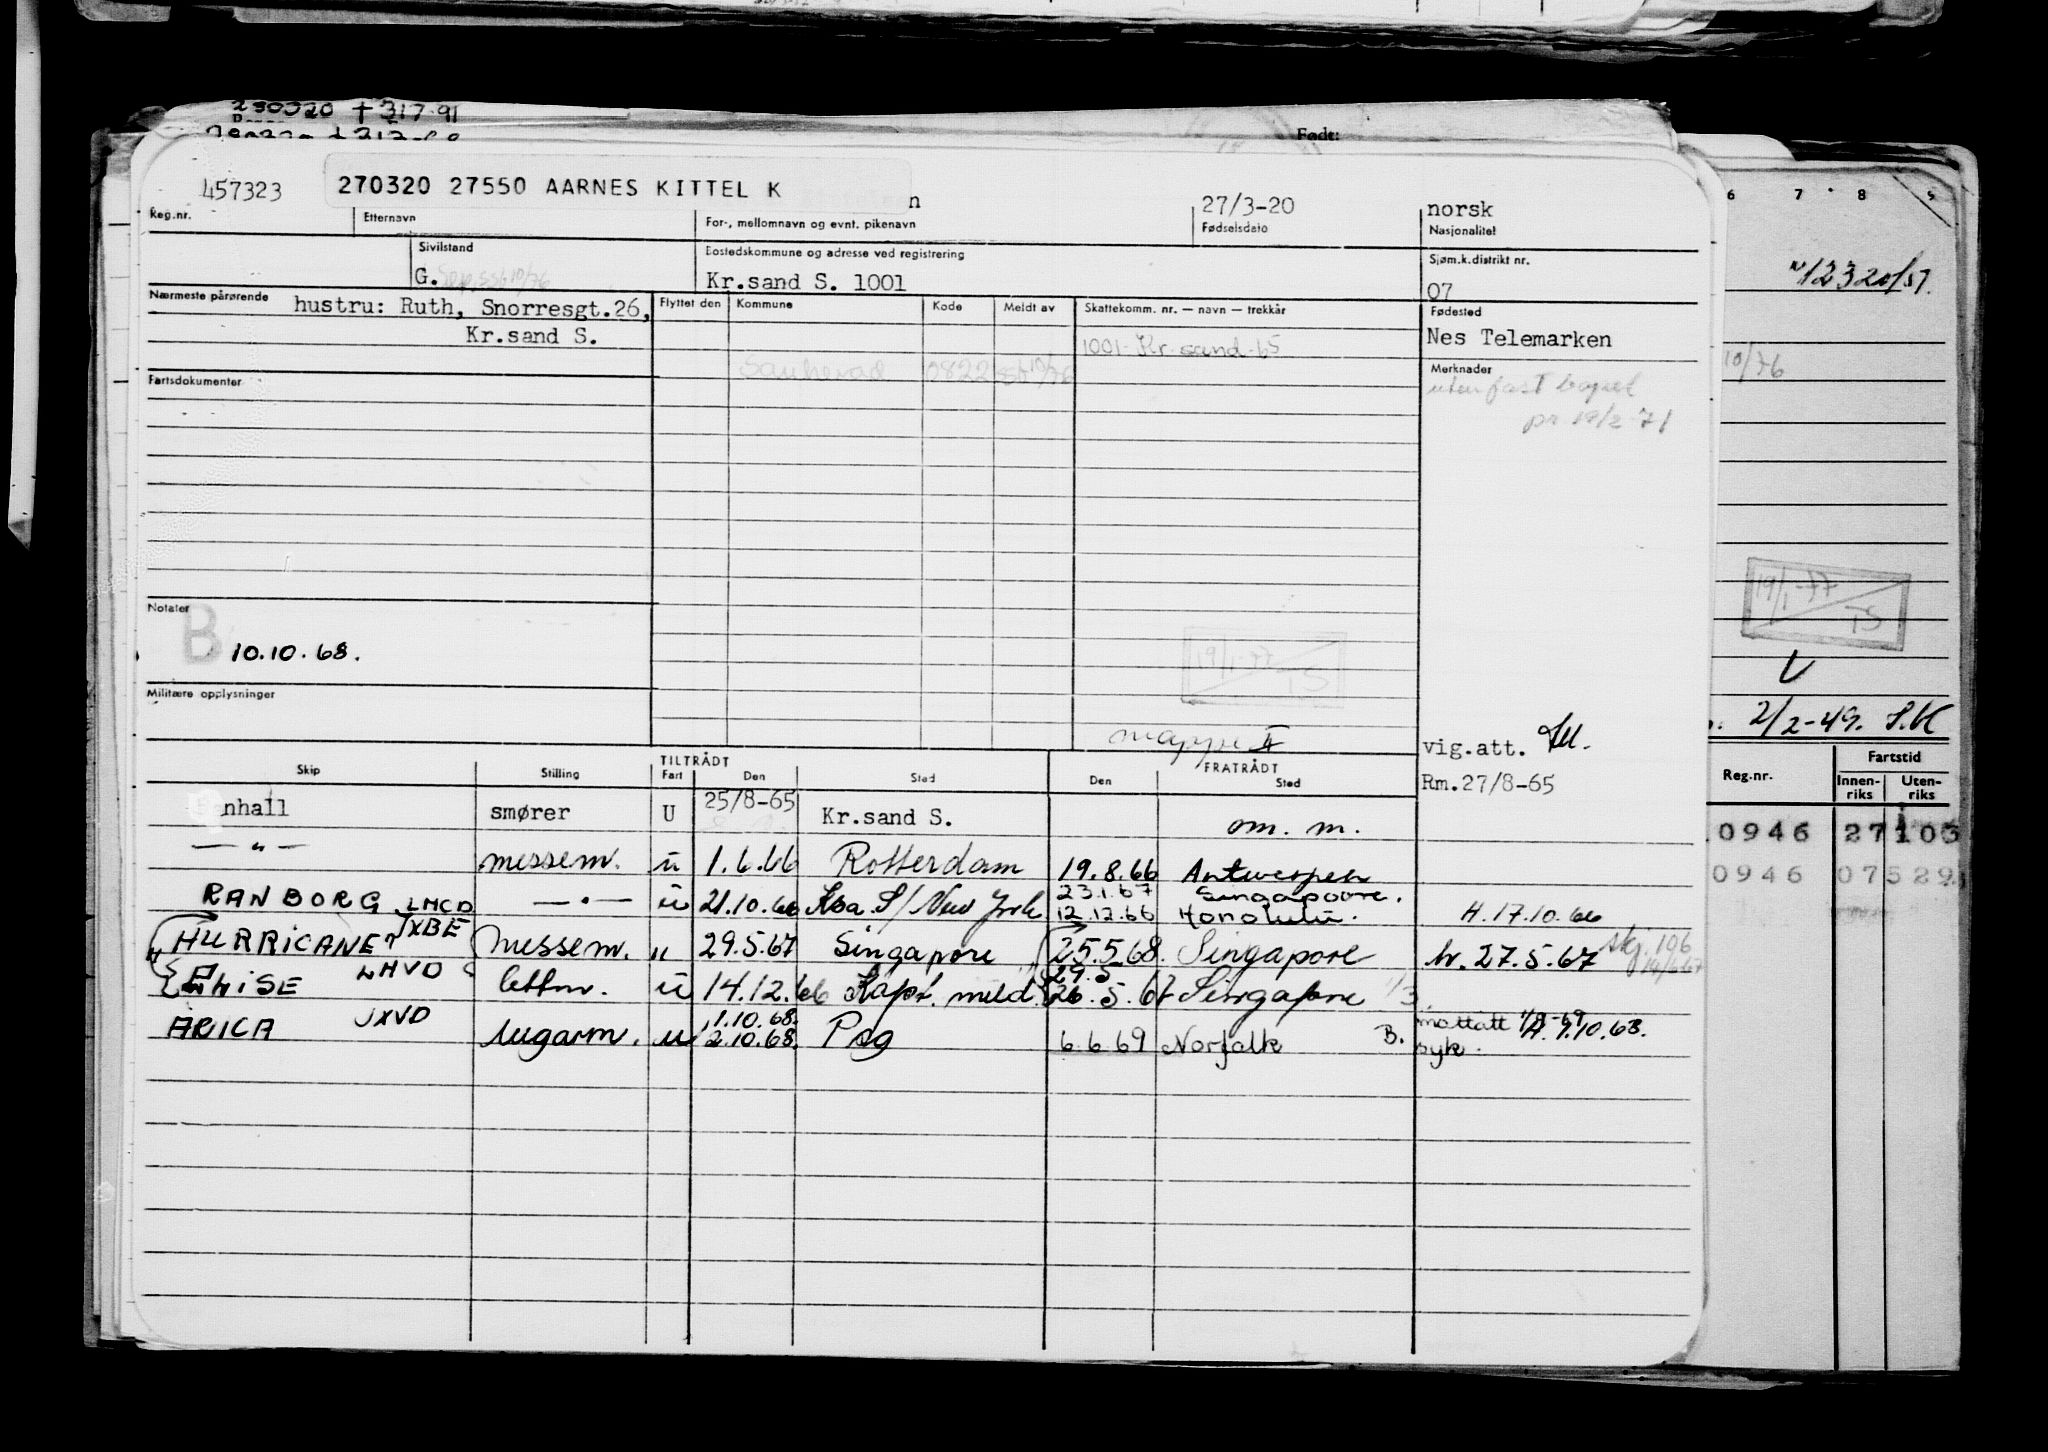 230320 + 317-91
Født:
457323 270320 27550 AARNES KITTEL K n 27/3-20 norsk
Reg.nr. Etternavn For-, mellomnavn og evnt. pikenavn Fødselsdato Nasjonalitet
Sivilstand Bostedskommune og adresse ved registrering Sjøm.k.distrikt nr.
G. Kr.sand S. 1001 07
Nærmeste pårørende hustru: Ruth, Snorresgt.26, Flyttet den Kommune Kode Meldt av Skattekomm. nr. — navn — trekkår Fødested
Kr.sand S. 1001 Kr.sand-65 Nes Telemarken
Sauherad 0822 10/76
Fartsdokumenter Merknader
uten fast bopel
pr 19/2-71
Notater
B 10.10.68.
19/1-77 TS
Militære opplysninger
mappe II vig.att.
Skip Stilling TILTRÅDT Fart Den Sted Den FRATRÅDT Sted Rm.27/8-65
nhall smører U 25/8-65 Kr.sand S. om. m.
— " — messem. u 1.6.66 Rotterdam 19.8.66 Antwerpen
23.1.67 Singapore.
RANBORG LHCD — " — u 21.10.66 New York 12.12.66 Honolulu. A.17.10.66
HURRICANE JXBE messem. " 29.5.67 Singapore 25.5.68. Singapore 27.5.67 skj. 106
29.5
LHVD u 14.12.66 Kapt. meld. 26.5.67 Singapore
1.10.68.
ARICA JXVD lugarm. u 2.10.68. Psg 6.6.69 Norfolk B. syk. A. 9.10.68.
6 7 8
10/76
19/1-77 TS
V
2/2-49. S.K
Reg.nr. Fartstid
Innen-riks Uten-riks
0946 27103
0946 07529